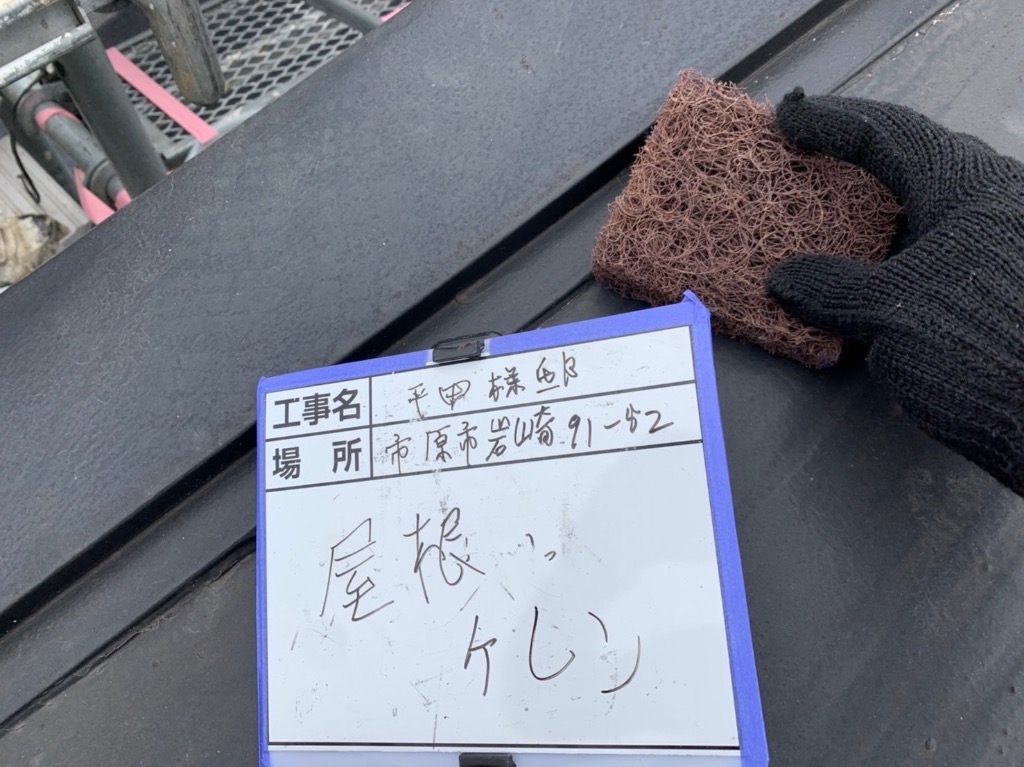 工事名 平田様邸
場所 市原市岩崎91-52
屋根
ケレン